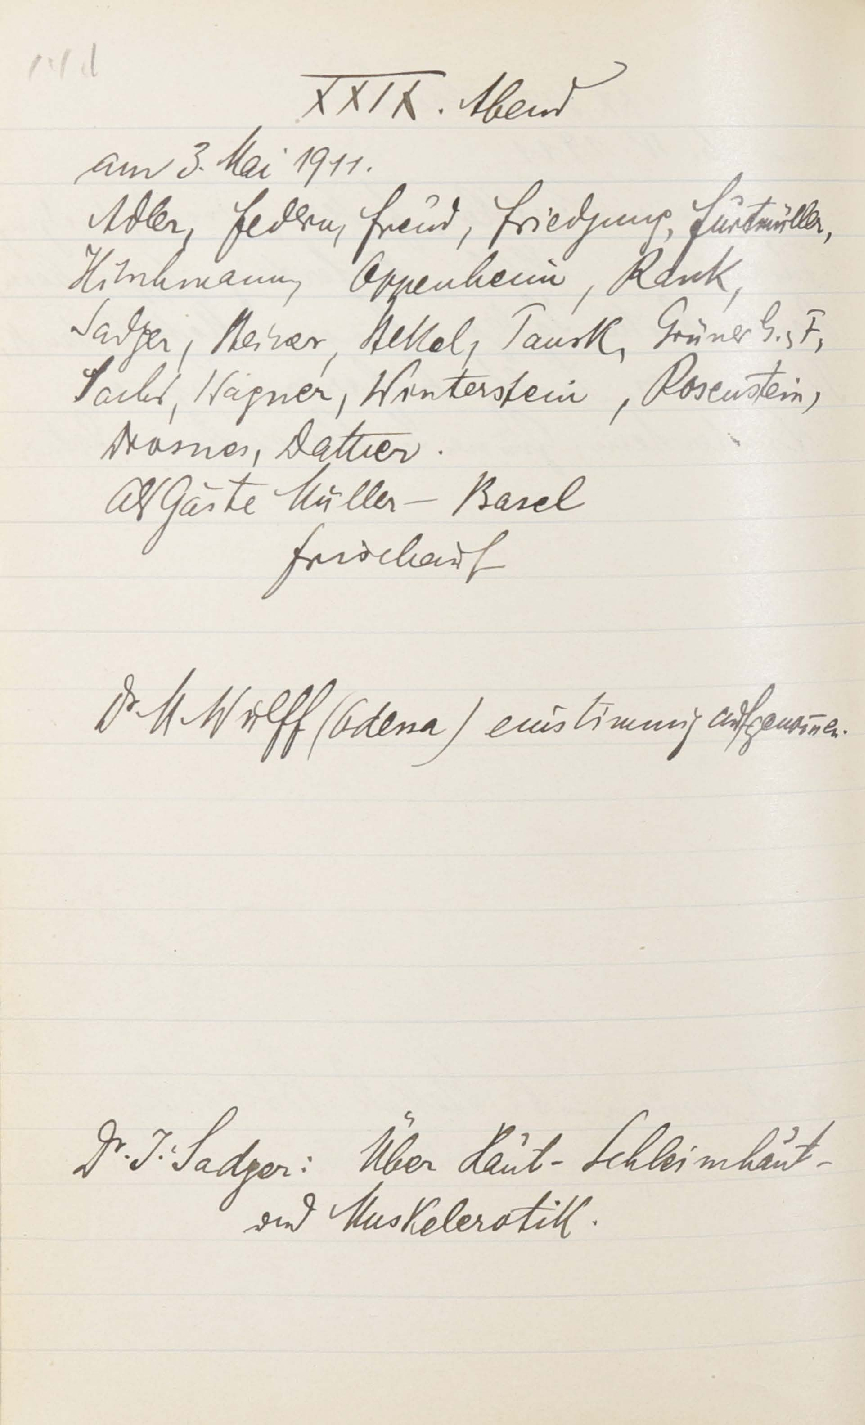 XXIX. Abend
am 3. Mai 1911.
Adler, Federn, Freud, Friedjung, Furtmüller,
Hitschmann, Oppenheim, Rank,
Sadger, Steiner, Stekel, Tausk, Grüner G., F.,
Sachs, Wagner, Winterstein, Rosenstein,
Drosnes, Dattner.
Als Gäste Müller – Basel
Frischauf
Dr. M. Wulff (Odessa) einstimmig aufgenom̄en.
Dr. J. Sadger: Über Haut- Schleimhaut-
und Muskelerotik.